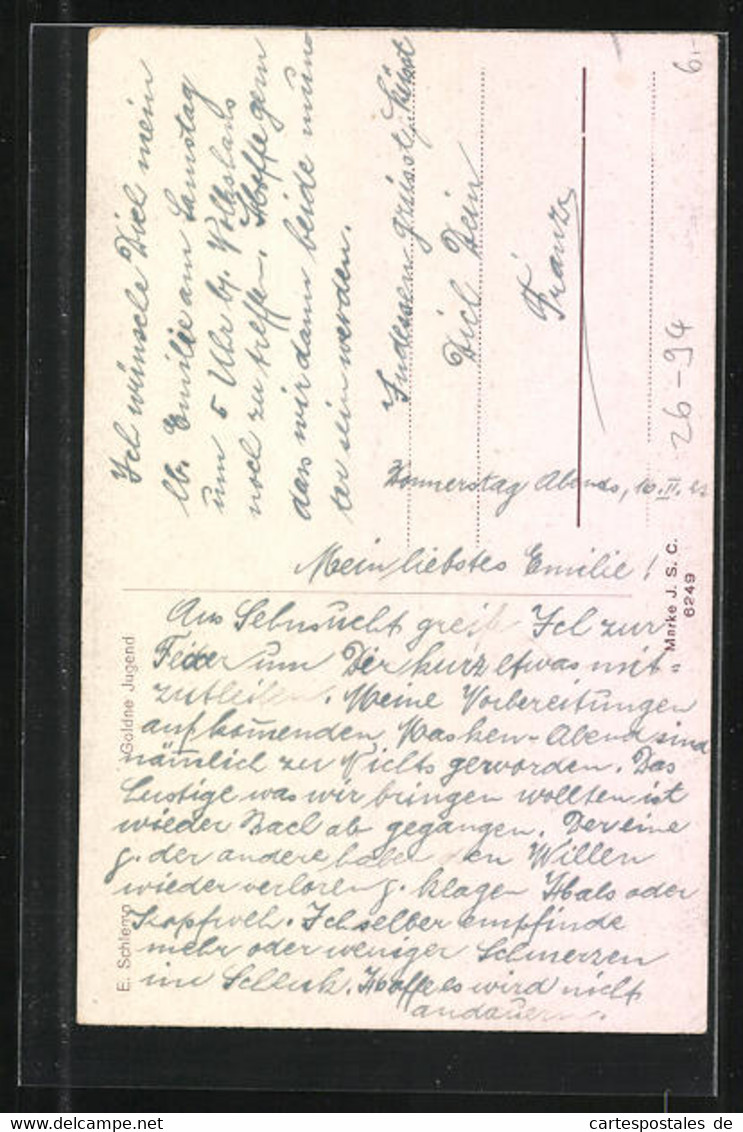 Donnerstag Abends, 10.II.
Mein liebstes Emilie!
Aus Sehnsucht greife Ich zur
Feder um Dir kurz etwas mit=
zuteilen. Meine Vorbereitungen
auf kom̄enden Masken-Abend sind
nämlich zu Nichts geworden. Das
Lustige was wir bringen wollten ist
wieder Bach ab gegangen. Der eine
der andere haben den Willen
wieder verloren klagen Hals oder
Kopfweh. Ich selber empfinde
mehr oder weniger Schmerzen
im Schluk. Hoffe es wird nicht
andauern.
Ich wünsche Dich mein
lb. Emilie am Samstag
um 5 Uhr bz. Volkshaus
noch zu treffen. Hoffe gern
dass wir dann beide mun=
ter sein werden.
Indessen grüsst, küsst
Dich Dein
Franz
6.-
26-94
Marke J. S. C.
6249
E. Schlemo
Goldne Jugend
cartespostales de